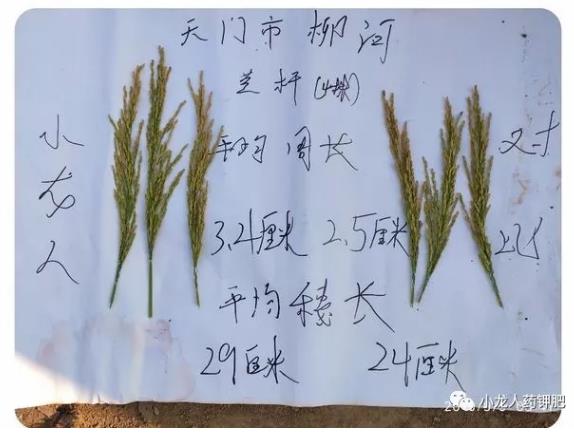 天门市柳河
兰杆(4株)
平均周长
3.4厘米 2.5厘米
平均穗长
29厘米 24厘米
小龙人
对比
小龙人药钾肥